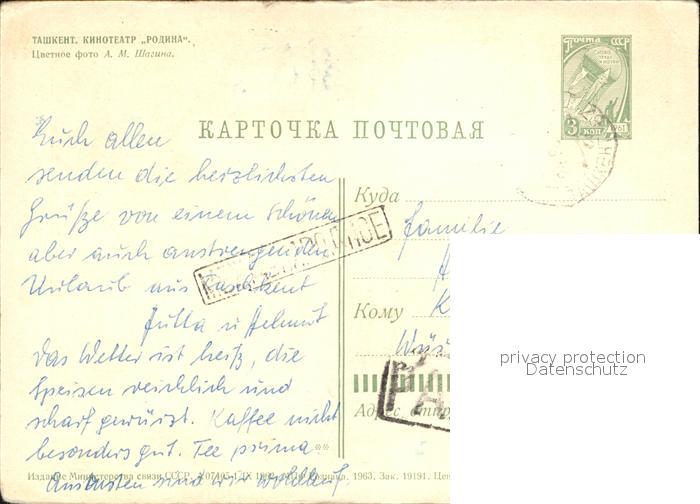 ТАШКЕНТ. КИНОТЕАТР „РОДИНА“.
Цветное фото А. М. Шагина.
ПОЧТА СССР
3 КОП 1961
КАРТОЧКА ПОЧТОВАЯ
Euch allen
senden die herzlichsten
Grüße von einem schönen
aber auch anstrengenden
Urlaub aus Taschkent
Jutta u Helmut
Das Wetter ist heiß, die
Speisen reichlich und
scharf gewürzt. Kaffee nicht
besonders gut. Tee prima
Ansonsten sind wir wohlauf
Куда
Familie
Кому
Адрес
privacy protection
Datenschutz
Издание Министерства связи СССР.
1963. Зак. 19191.